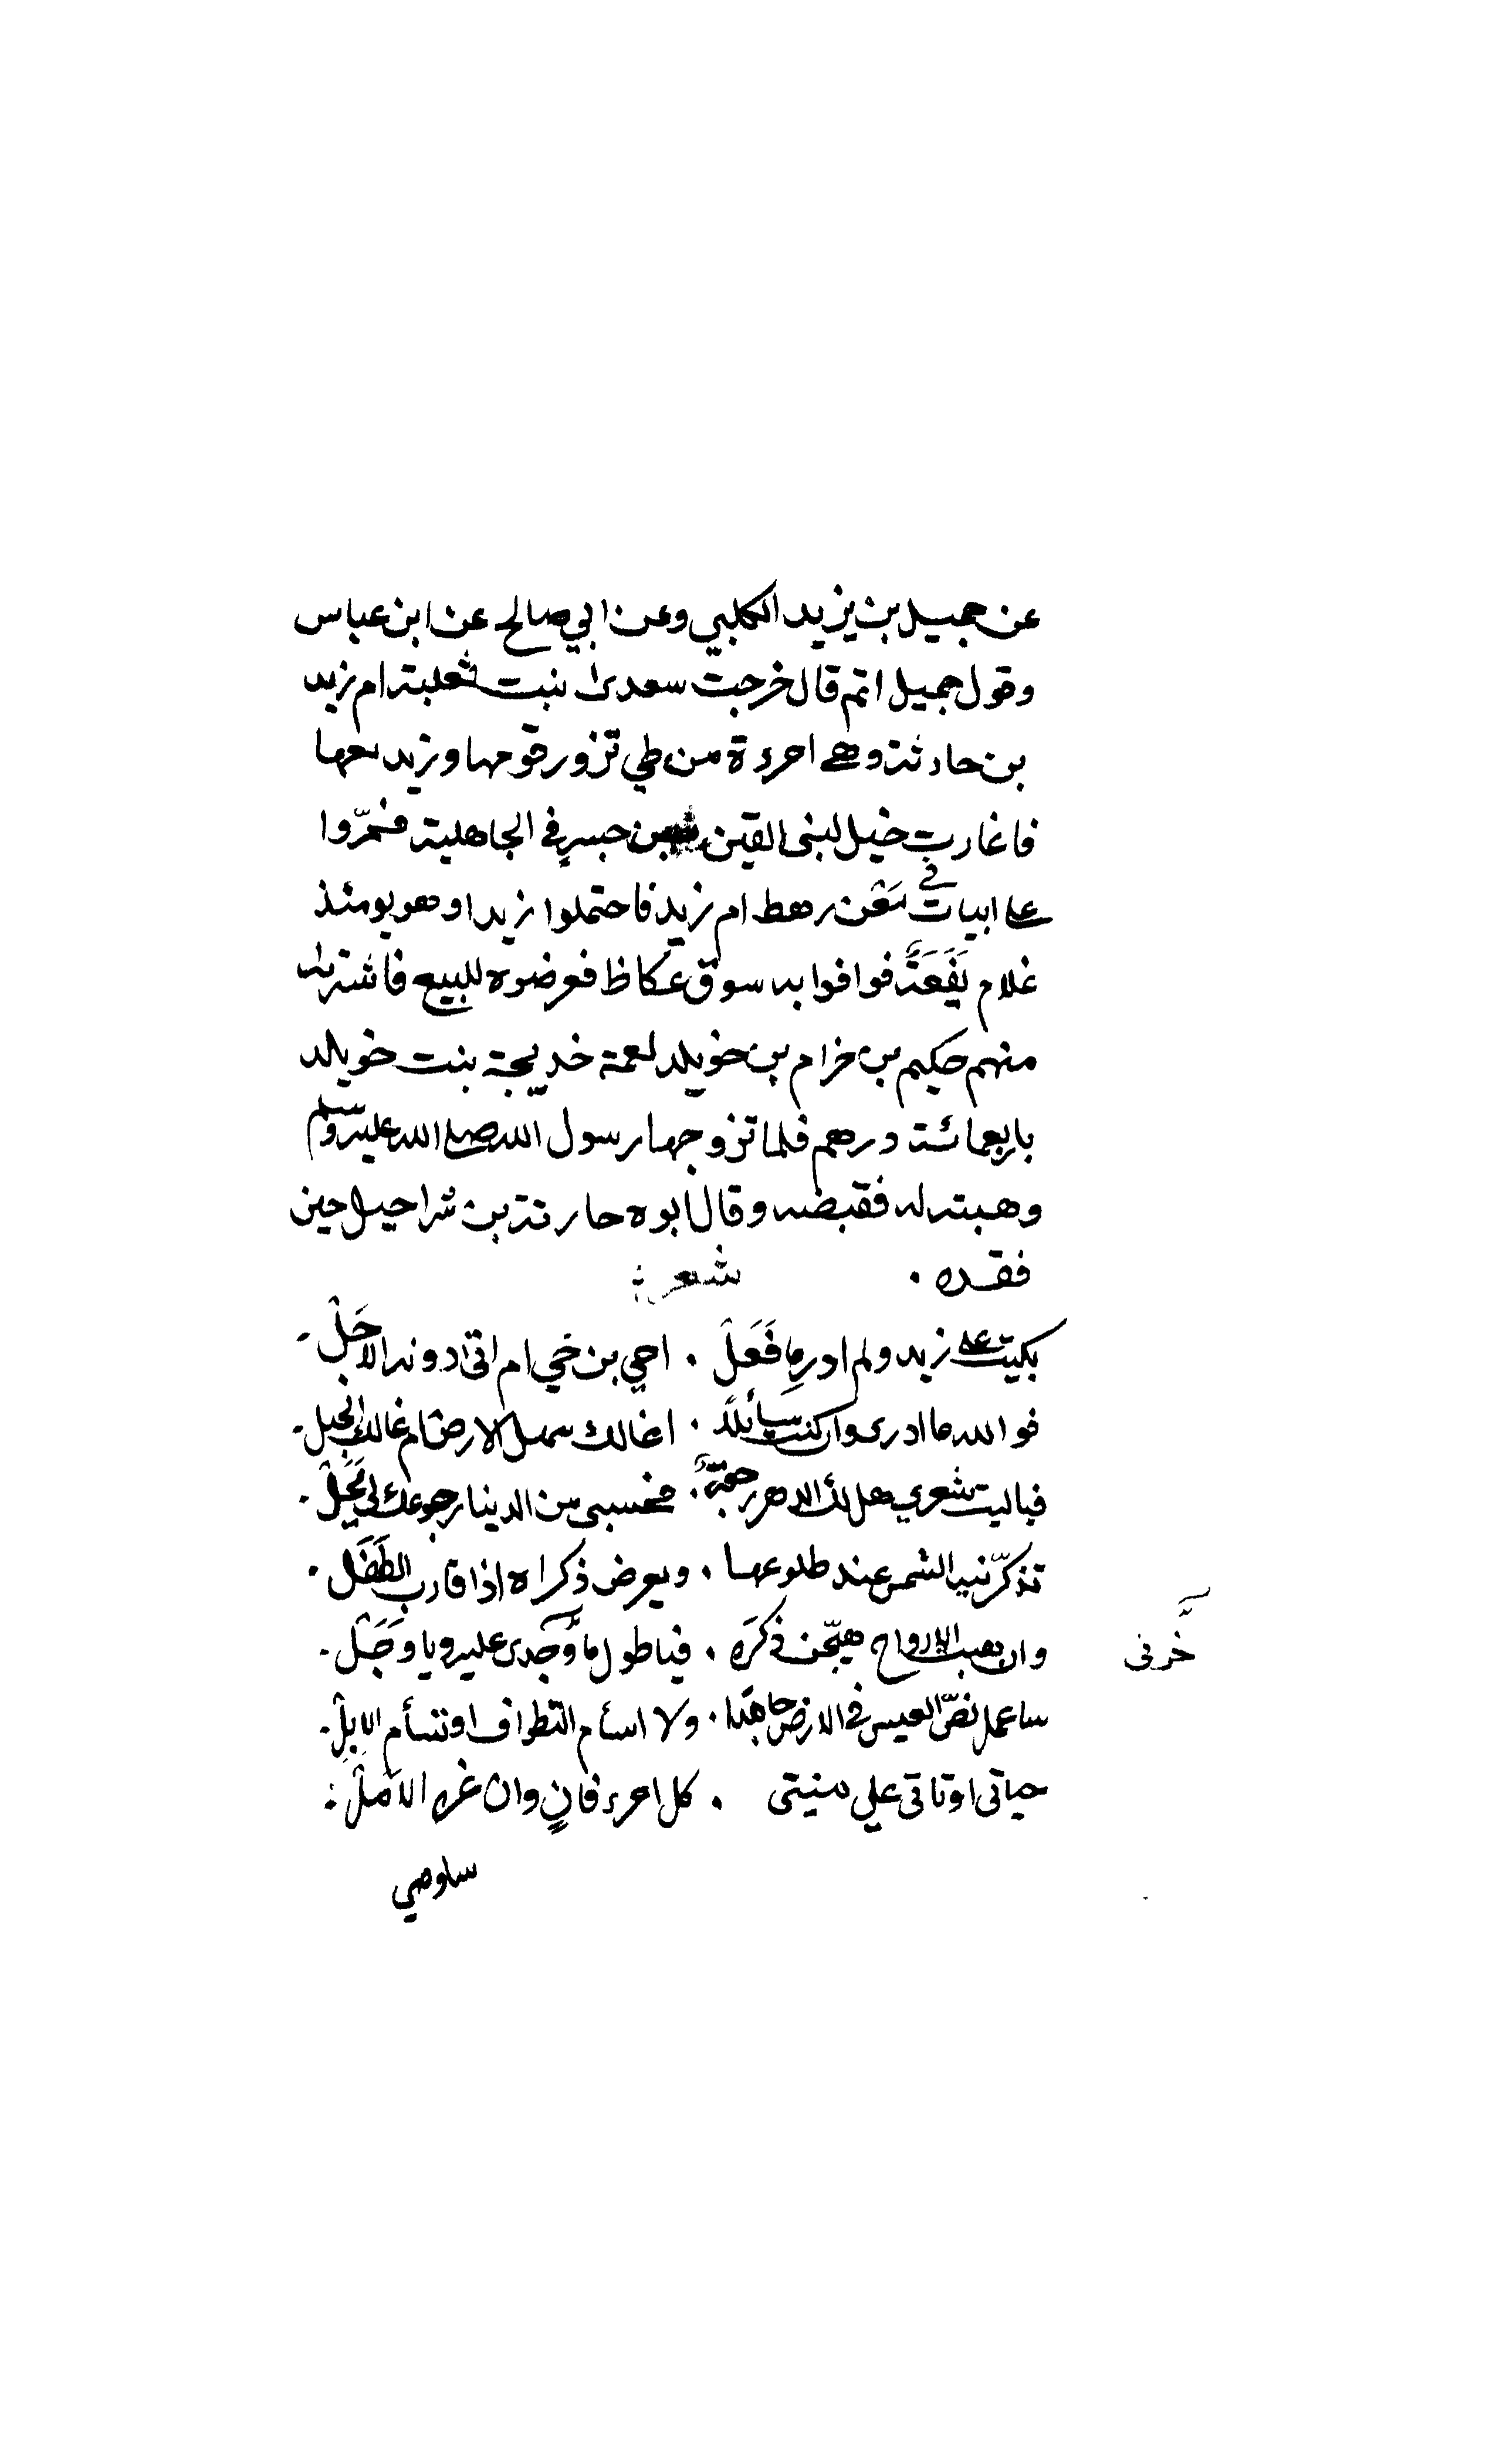 عن جميل بن يزيد الكلبي وعن ابي صالح عن ابن عباس
وقول جميل اتم قال خرجت سعدى بنت ثعلبة ام زيد
بن حارثة وهى امرءة من طي تزور قومها وزيد معها
فاغارت خيل لبنى القين بن جسرٍ فى الجاهلية فمرّوا
على ابيات فى معن رهط ام زيد فاحتملوا زيدا وهو يومئذ
غلام يَفَعَةٌ فوافوا به سوق عكاظ فعرضوه للبيع فاشتراه
منهم حكيم بن حزام بن خويلد لعمة خديجة بنت خويلد
باربعمائة درهم فلما تزوجها رسول الله صلى الله عليه وسلم
وهبته له فقبضه وقال ابوه حارثة بن شراحيل حين
فقده . شعر :
بكيت على زيد ولم ادرِ ما فَعَلْ . احي بن خي ام اتى دونه الاجَلْ .
فوالله ما ادرى وان كنت سائلاً . اغالك سهل الارض ام غالك الجبل .
فياليت شعري هل لك الدهر رجعةٌ . فحسبى من الدينا رجوعك لى بَجَلْ .
تذكّرنيه الشمس عند طلوعها . ويعرض ذكراه اذا قارب الطَفَل .
وان هبت الارواح هيّجن ذكرَه . فيا طول ما وَجدى عليه ويا وَجَلْ .
حُزنى
ساعمل نصّ العيس فى الارض جاهدًا . ولا اسأم التطواف او تسأم الابلْ .
حياتى او تاتى علي منيتى . كل امرء فانٍ وان غره الاملْ :
ساوصي